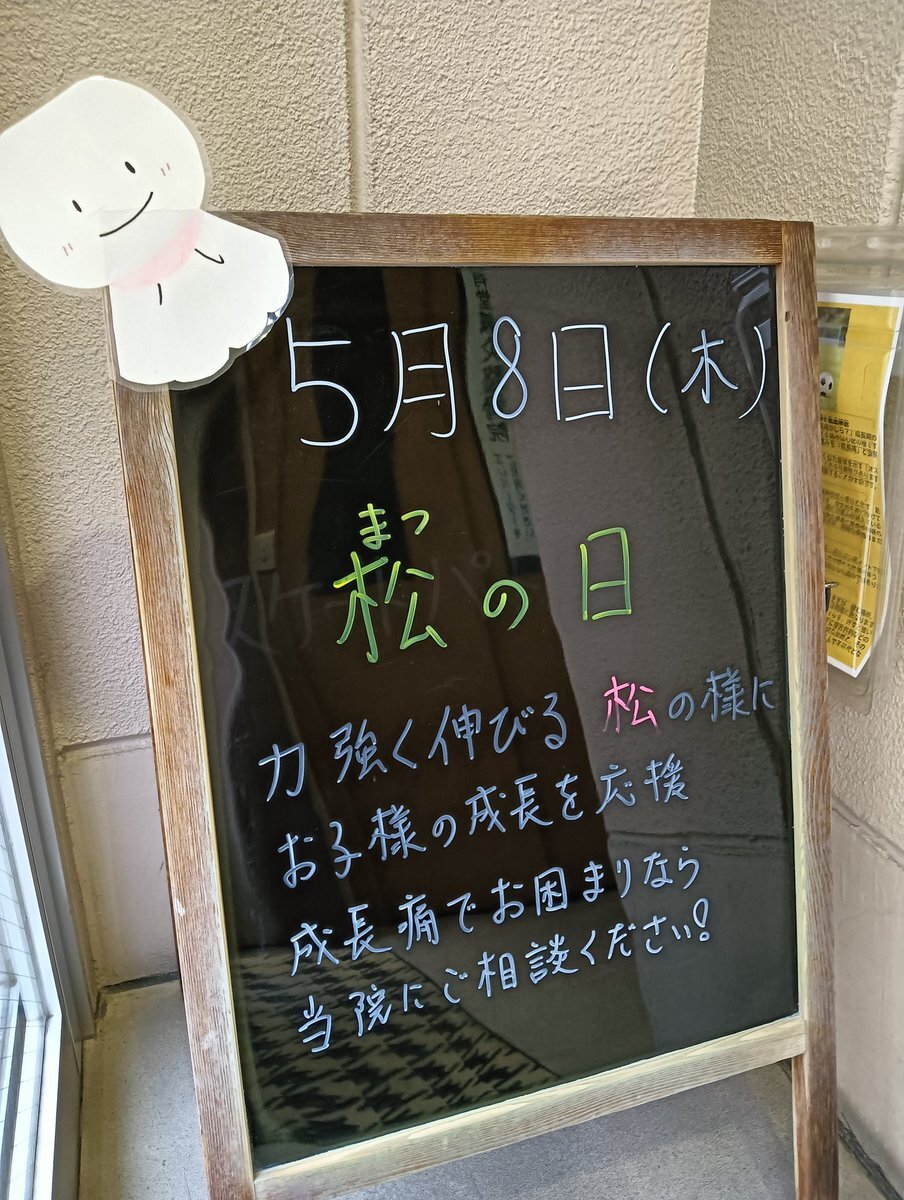 5月8日(木)
まつ
松の日
力強く伸びる松の様に
お子様の成長を応援
成長痛でお困まりなら
当院にご相談ください!